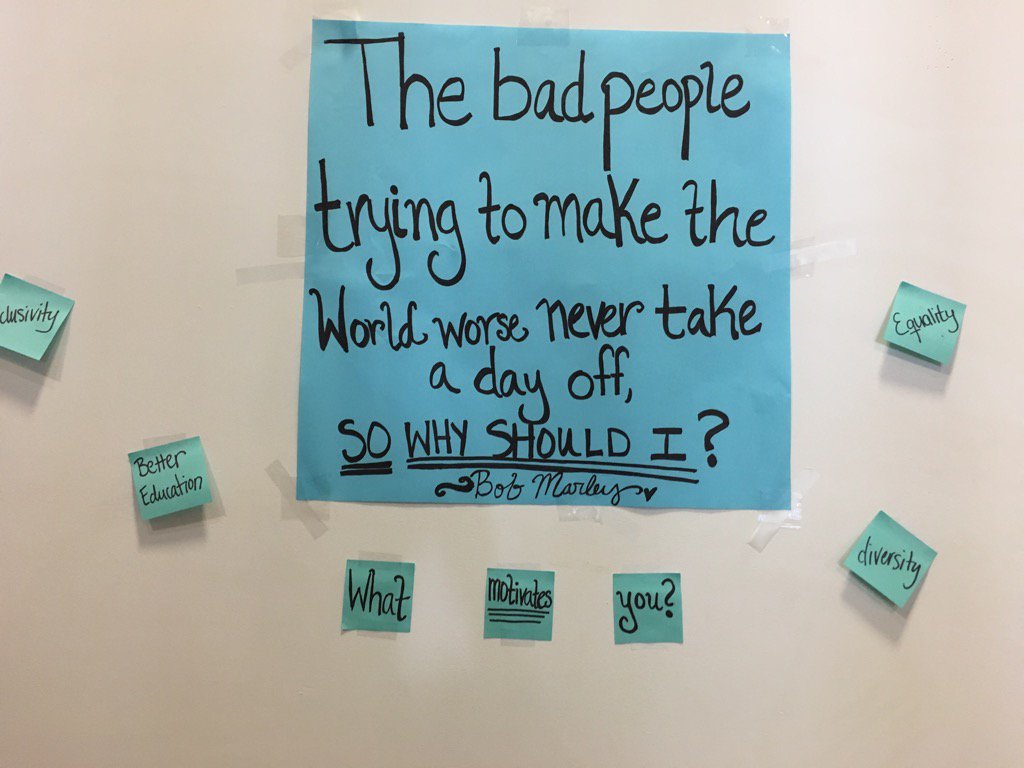 The bad people
trying to make the
World worse never take
a day off,
SO WHY SHOULD I?
Bob Marley
clusivity
Better
Education
What
motivates
you?
Equality
diversity